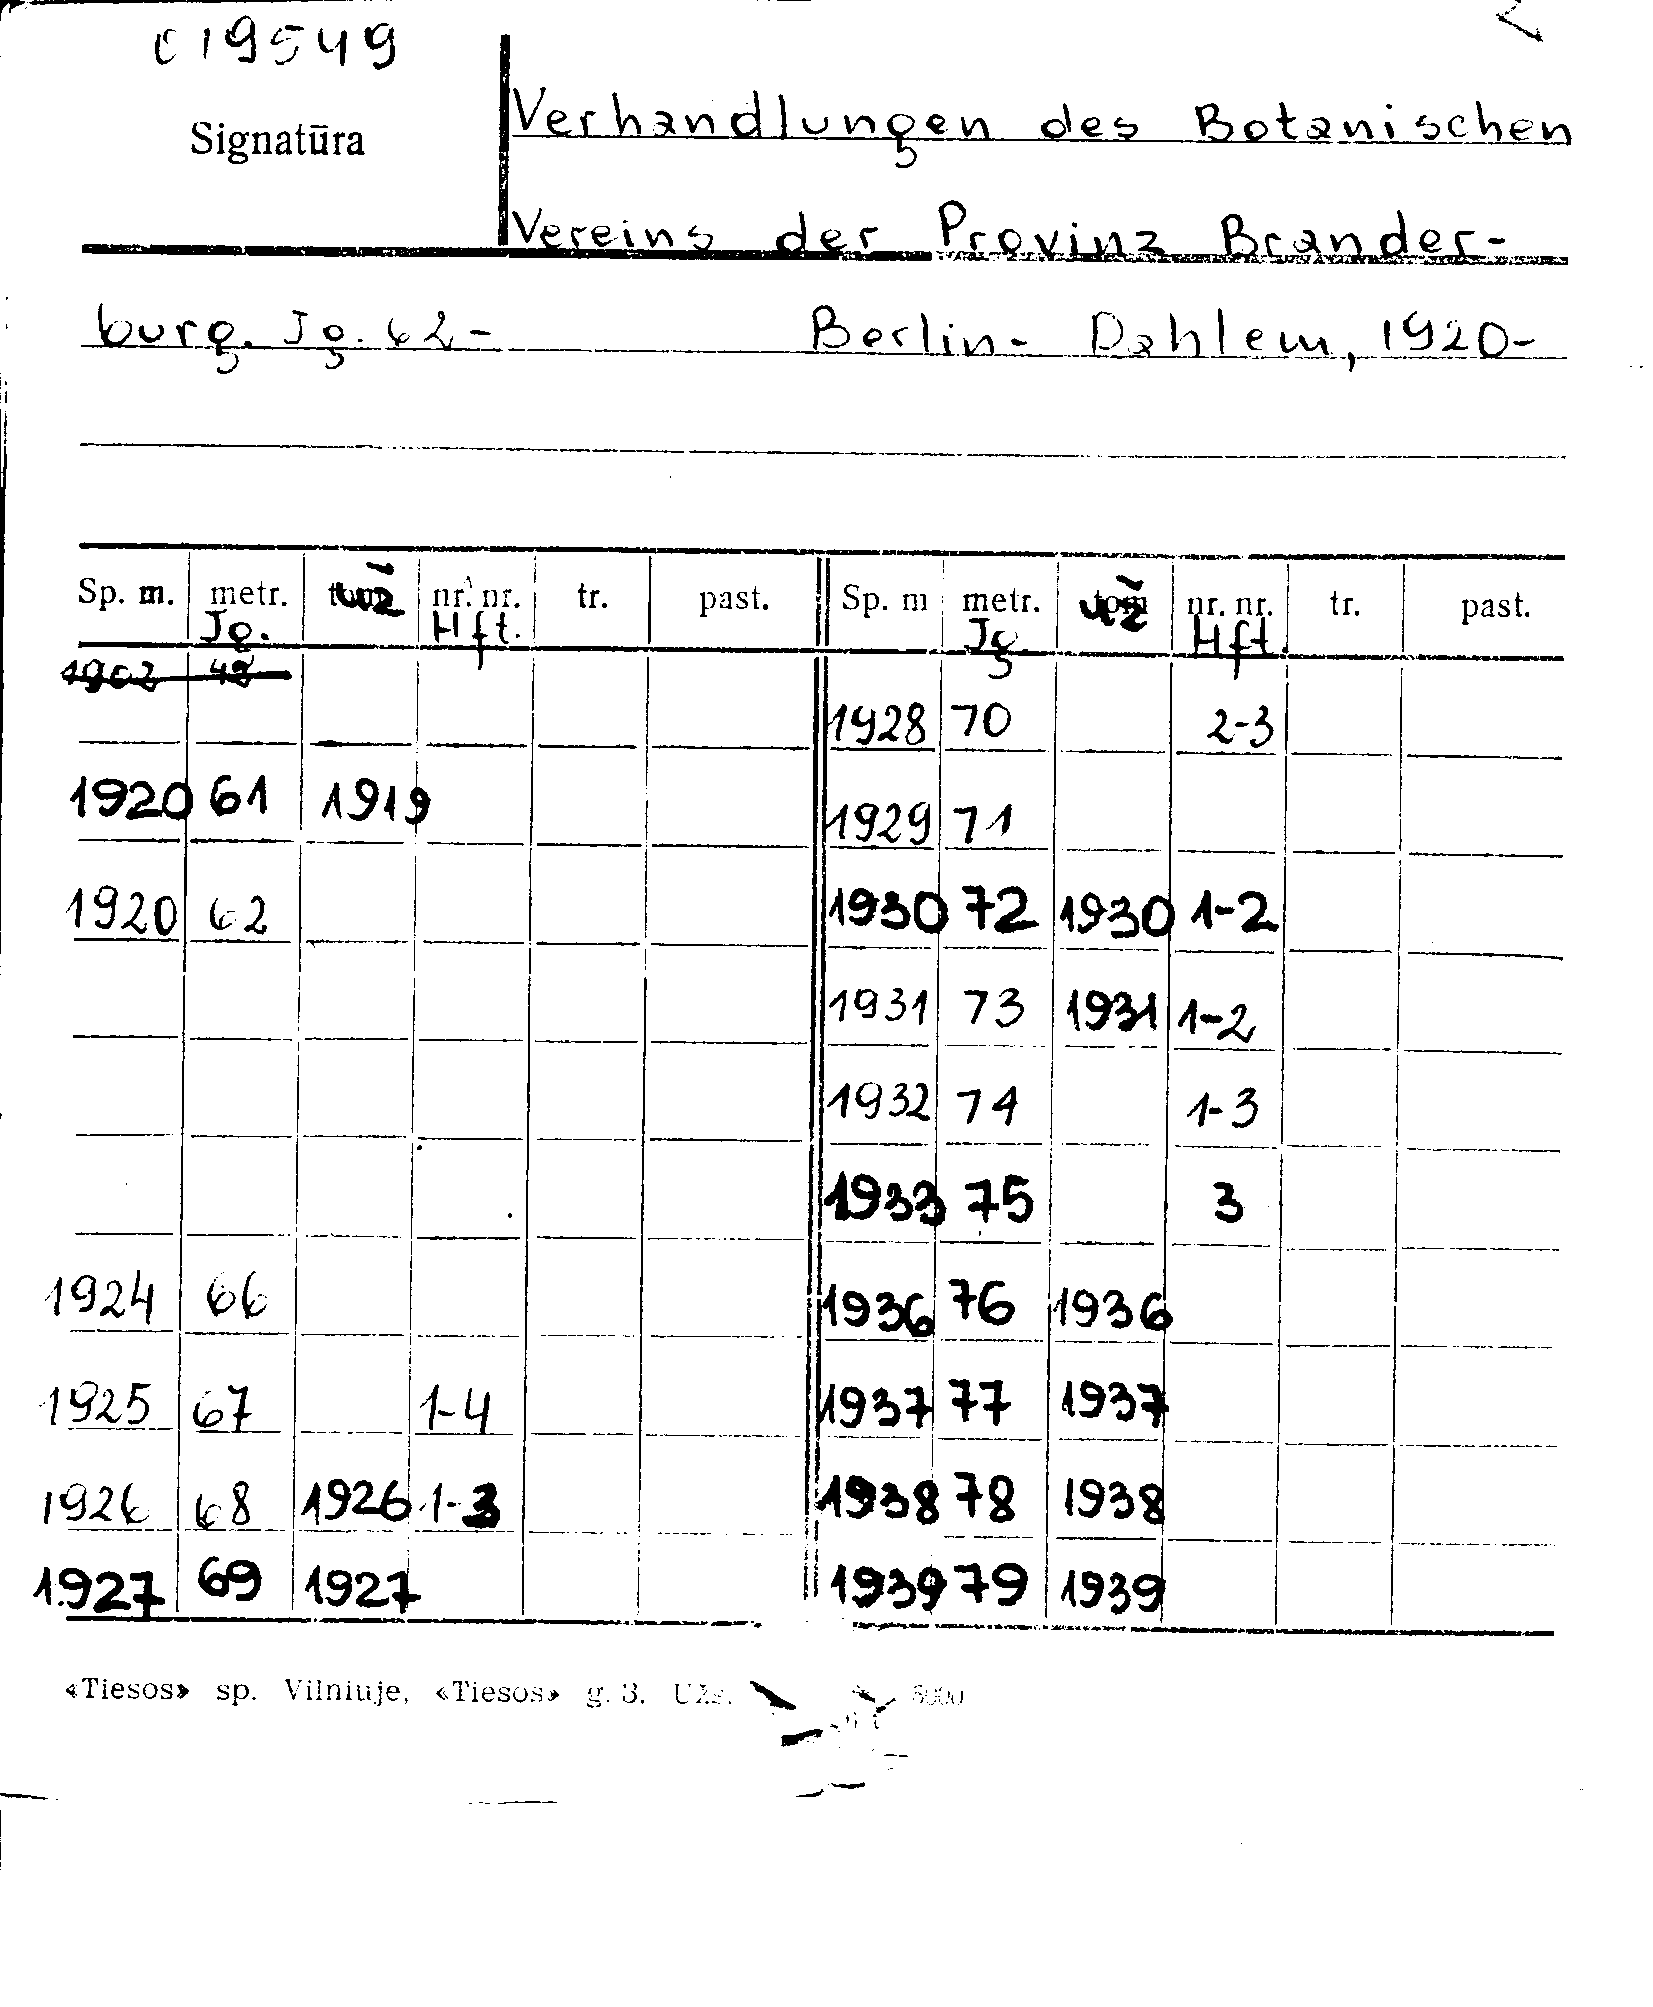 C 19549
Signatūra
Verhandlungen des Botanischen
Vereins der Provinz Brander-
burg. Jg. 62- Berlin- Dahlem, 1920-
Sp. m. metr. nr. nr. tr. past. Sp. m metr. tom nr. nr. tr. past.
Jg. Hft. Jg. Hft.
1902 42
1928 70 2-3
1920 61 1919
1929 71
1920 62
1930 72 1930 1-2
1931 73 1931 1-2
1932 74 1-3
1933 75 3
1924 66
1936 76 1936
1925 67 1-4
1937 77 1937
1926 68 1926 1-3
1938 78 1938
1927 69 1927
1939 79 1939
«Tiesos» sp. Vilniuje, «Tiesos» g. 3. Užs.